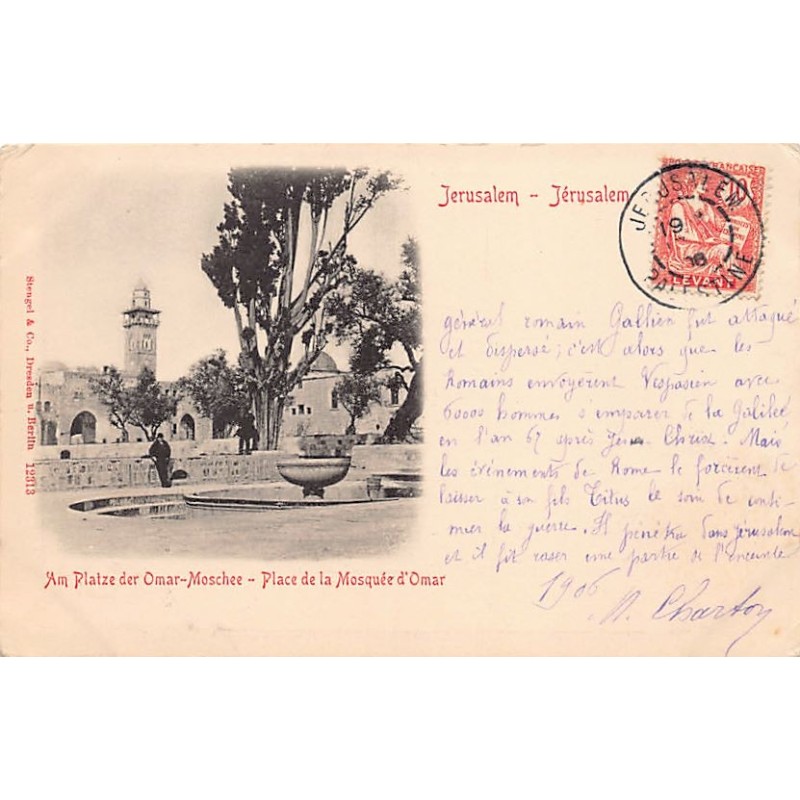 Jerusalem -- Jérusalem
JERUSALEM
19
06
PALESTINE
10
LEVANT
général romain Gallien fut attaqué
et dispersé; c'est alors que les
Romains envoyèrent Vespasien avec
60000 hommes s'emparer de la Galilée
en l'an 67 après Jésus Christ. Mais
les événements de Rome le forcèrent de
laisser à son fils Titus le soin de conti-
nuer la guerre. Il pénétra dans Jérusalem
et il fit raser une partie de l'enceinte
1906
Am Platze der Omar-Moschee -- Place de la Mosquée d'Omar
Stengel & Co., Dresden u. Berlin 12313